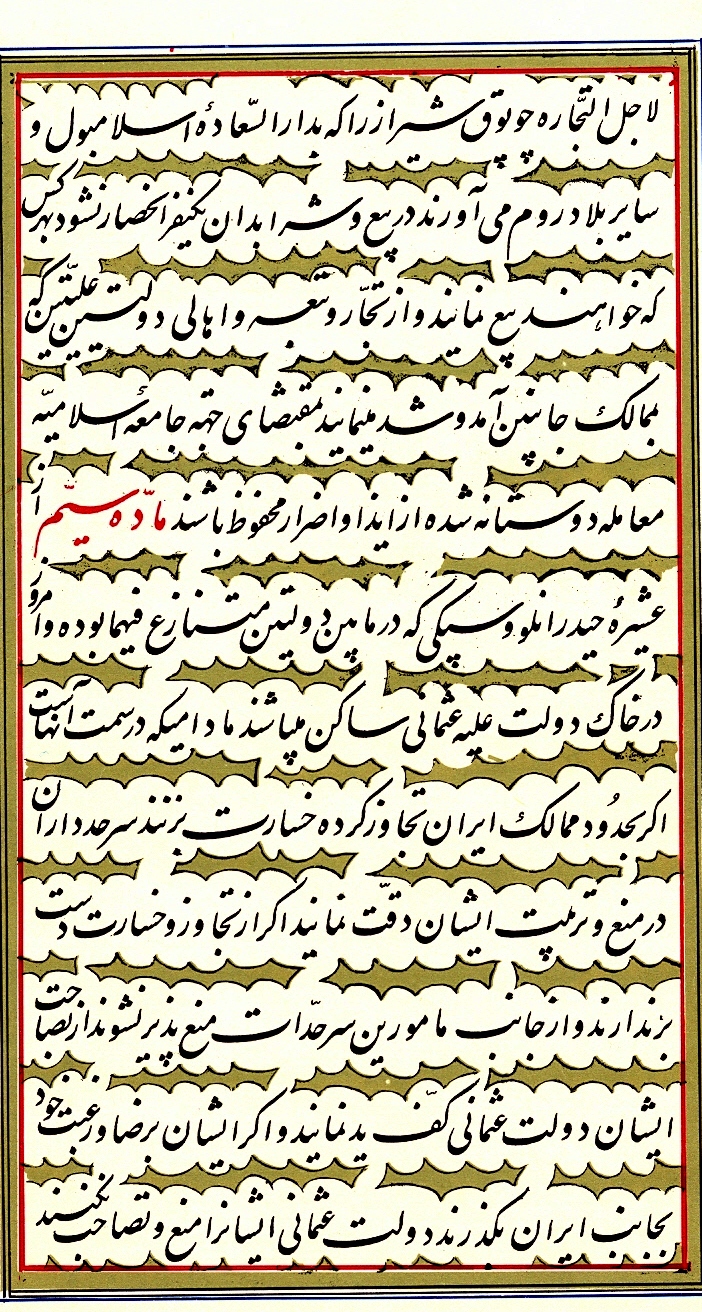 لاجل التجّاره چوبوق شیراز را که بدار السّعادهٔ اسلامبول و
سایر بلاد روم می آورند در بیع و شرا بدان یکنیفر انحصار نشود بهر کس
که خواهند بیع نمایند و از تجّار و تبعه و اهالی دولتین علیّتین که
بممالک جانبین آمد و شد مینمایند بمقتضای جهه جامعهٔ اسلامیّه
معامله دوستانه شده از ایذا و اضرار محفوظ باشند مادّه سیّم از
عشیرهٔ حیدرانلو و سبیکی که در مابین دولتین متنازع فیها بوده و امروز
در خاک دولت علیه عثمانی ساکن میباشند مادامیکه در سمت آنهاست
اکر بحدُود ممالک ایران تجاوز کرده خسارت بزنند سرحدداران
در منع و تربیت ایشان دقّت نمایند اکر از تجاوز و خسارت دست
برندارند و از جانب مامورین سرحدّات منع پذیر نشوند از تصاحب
ایشان دولت عثمانی کفّ ید نمایند و اکر ایشان برضا و رغبت خود
بجانب ایران بگذرند دولت عثمانی ایشانرا منع و تصاحب نکنند